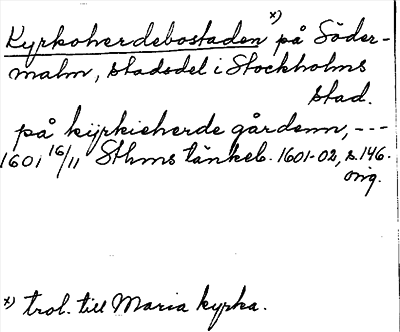 Kyrkoherdebostaden x) på Söder-
malm, stadsdel i Stockholms
stad.
på kijrkieherde gårdenn, ---
1601 16/11 Sthms tänkeb. 1601-02, s. 146.
orig.
x) trol. till Maria kyrka.